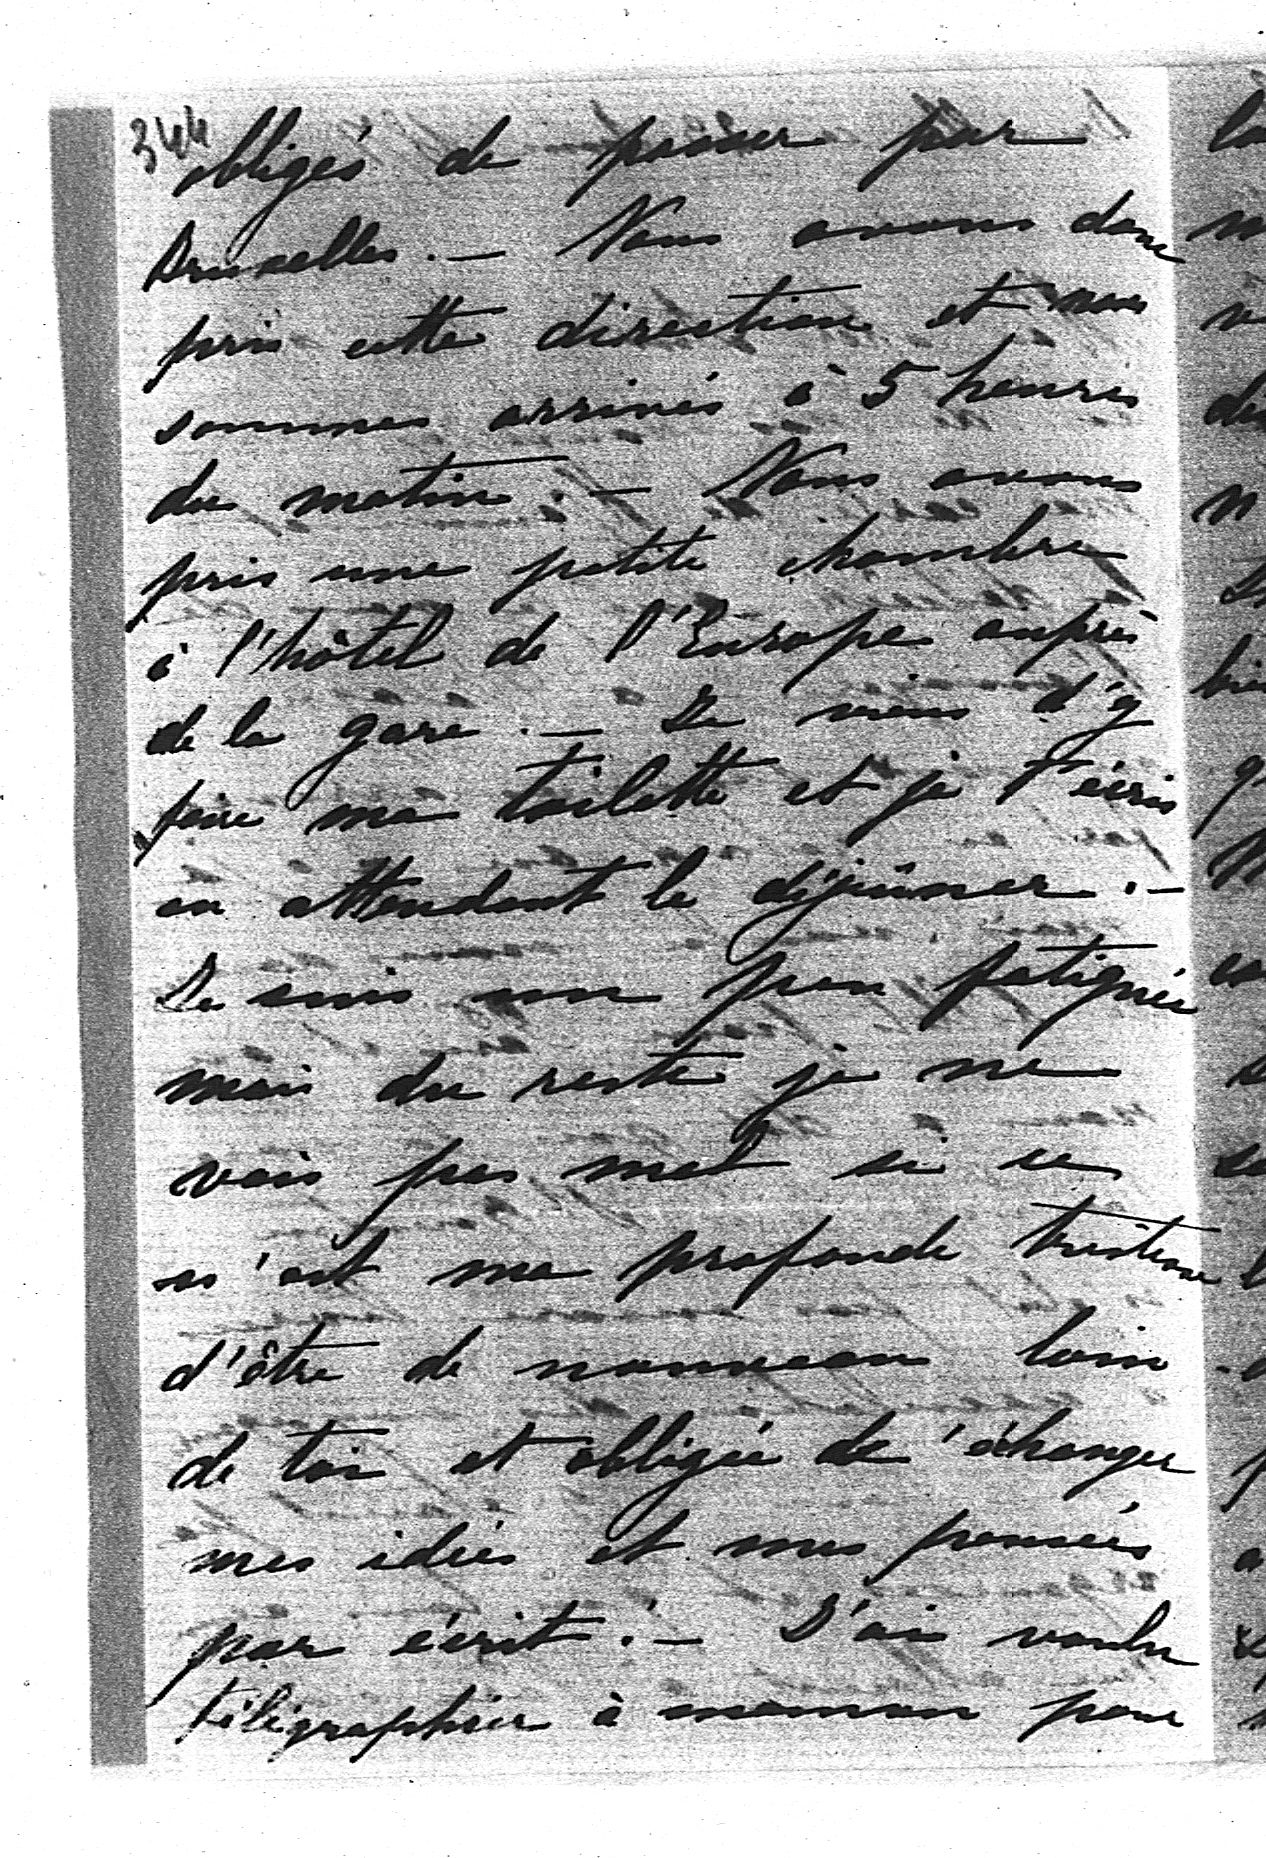 344
obligés de passer par
Bruxelles. — Nous avons donc
pris cette direction et nous
sommes arrivés à 5 heures
du matin. — Nous avons
pris une petite chambre
à l'hôtel de l'Europe auprès
de la gare. — Je viens d'y
faire ma toilette et je t'écris
en attendant le déjeûner. —
Je suis un peu fatiguée
mais du reste je ne
vais pas mal si ce
n'est ma profonde tristesse
d'être de nouveau loin
de toi et obligée de échanger
mes idées et mes pensées
par écrit. — J'ai voulu
télégraphier à maman pour